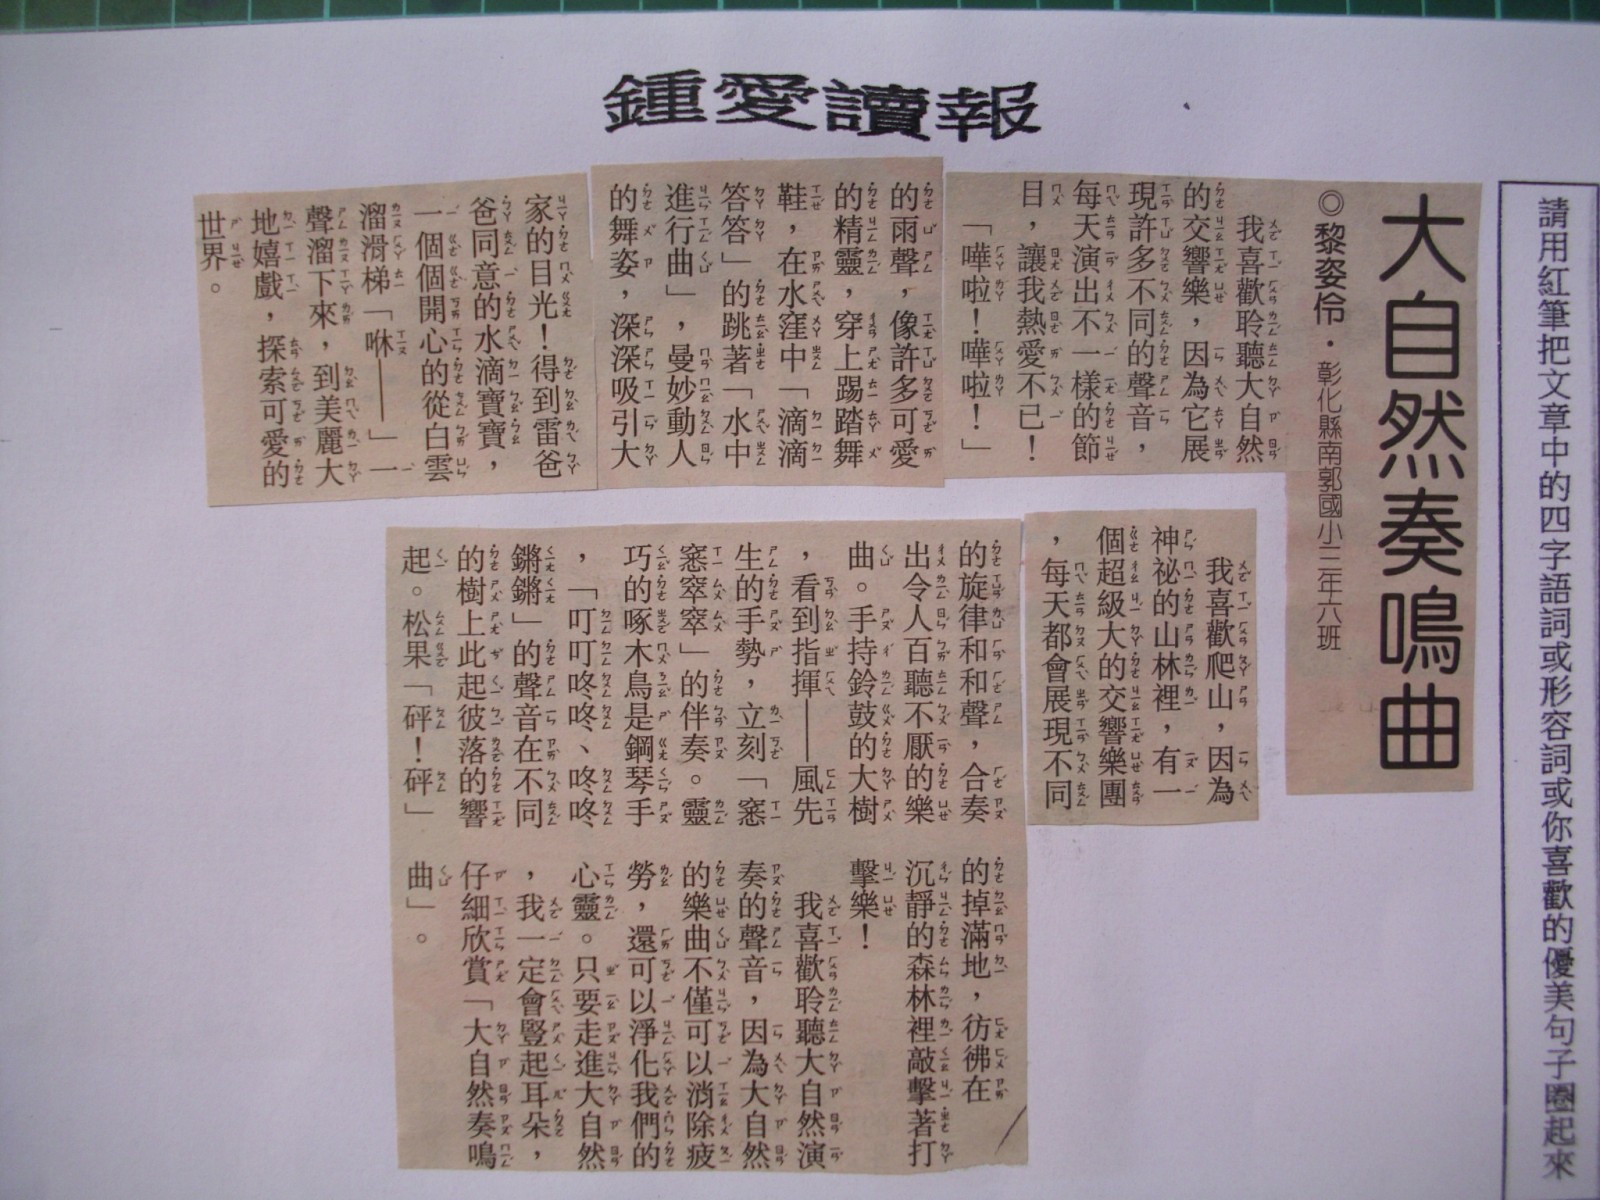 鍾愛讀報
請用紅筆把文章中的四字語詞或形容詞或你喜歡的優美句子圈起來
大自然奏鳴曲
◎黎姿伶・彰化縣南郭國小三年六班
我喜歡聆聽大自然
的交響樂,因為它展
現許多不同的聲音,
每天演出不一樣的節
目,讓我熱愛不已!
「嘩啦!嘩啦!」
的雨聲,像許多可愛
的精靈,穿上踢踏舞
鞋,在水窪中「滴滴
答答」的跳著「水中
進行曲」,曼妙動人
的舞姿,深深吸引大
家的目光!得到雷爸
爸同意的水滴寶寶,
一個個開心的從白雲
溜滑梯「咻——」一
聲溜下來,到美麗大
地嬉戲,探索可愛的
世界。
我喜歡爬山,因為
神祕的山林裡,有一
個超級大的交響樂團
,每天都會展現不同
的旋律和和聲,合奏
出令人百聽不厭的樂
曲。手持鈴鼓的大樹
,看到指揮——風先
生的手勢,立刻「窸
窸窣窣」的伴奏。靈
巧的啄木鳥是鋼琴手
,「叮叮咚咚、咚咚
鏘鏘」的聲音在不同
的樹上此起彼落的響
起。松果「砰!砰」
的掉滿地,彷彿在
沉靜的森林裡敲擊著打
擊樂!
我喜歡聆聽大自然演
奏的聲音,因為大自然
的樂曲不僅可以消除疲
勞,還可以淨化我們的
心靈。只要走進大自然
,我一定會豎起耳朵,
仔細欣賞「大自然奏鳴
曲」。